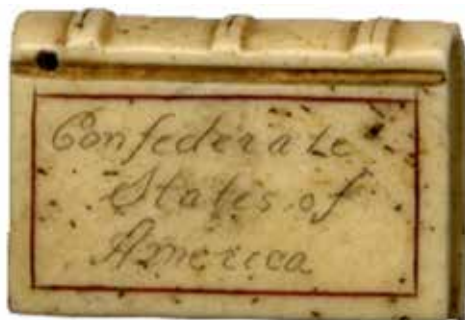 Confederate
States of
America